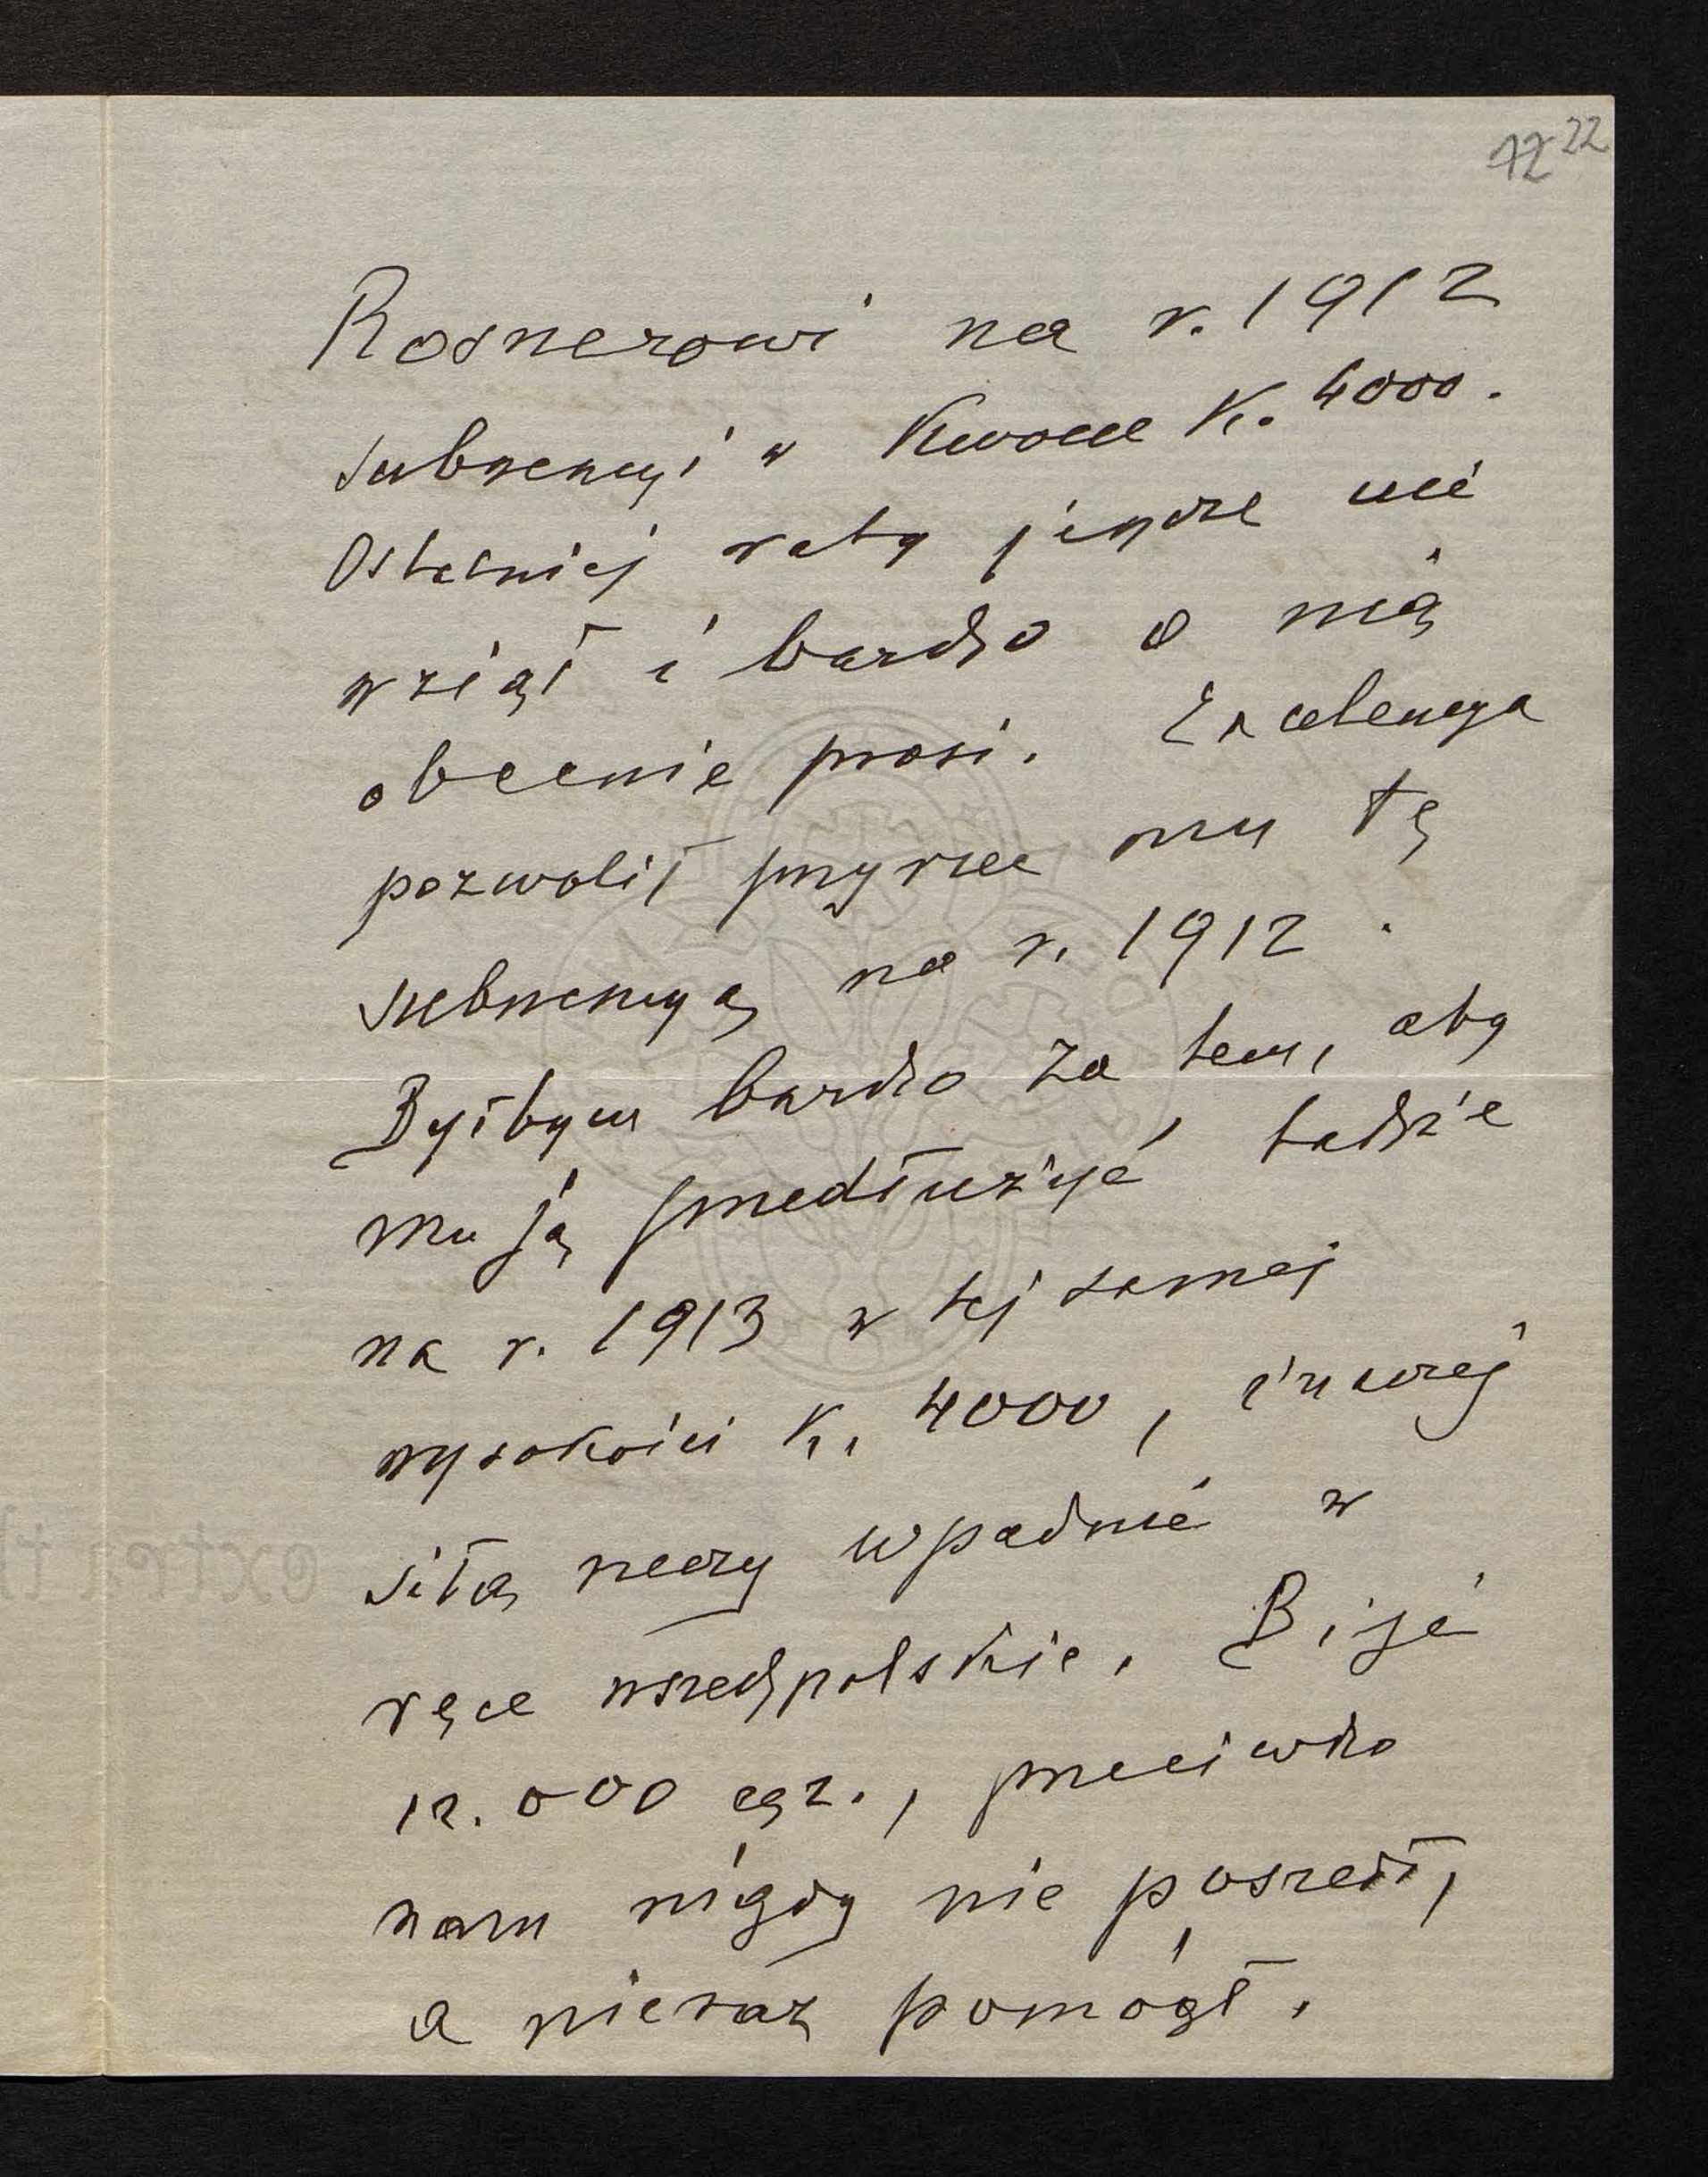 12 22
Rosnerowi na r. 1912
subwencyi w kwocie K. 4000.
Ostatniej raty jeszcze nie
wziął i bardzo o nią
obecnie prosi. Excelencya
pozwolił przyrzec mu tę
subwencyą na r. 1912.
Byłbym bardzo za tem, aby
mu ją przedłużyć także
na r. 1913 w tej samej
wysokości K. 4000, inaczej
siłą rzeczy wpadnie w
ręce wszechpolskie. Bije
12.000 egz., przeciwko
nam nigdy nie poszedł,
a nieraz pomógł.